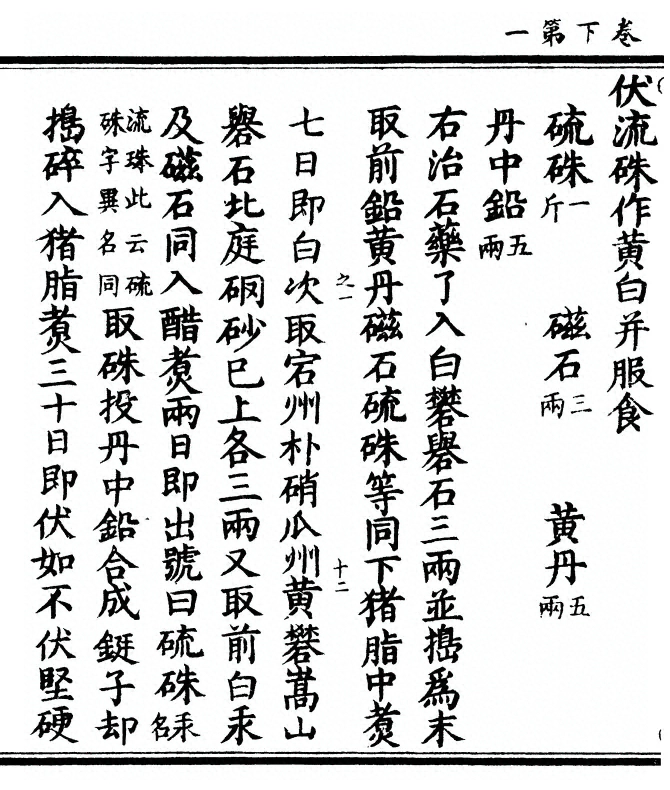 卷下第一
伏流硃作黃白并服食
硫硃一斤　磁石三兩　黃丹五兩
丹中鉛五兩
右治石藥了入白礬礜石三兩並搗爲末
取前鉛黃丹磁石硫硃等同下猪脂中煑
之一　十二
七日即白次取宕州朴硝瓜州黃礬嵩山
礜石北庭硇砂已上各三兩又取前白汞
及磁石同入醋煑兩日即出號曰硫硃汞名
流珠此云硫硃字異名同取硃投丹中鉛合成鋌子却
搗碎入猪脂煑三十日即伏如不伏堅硬